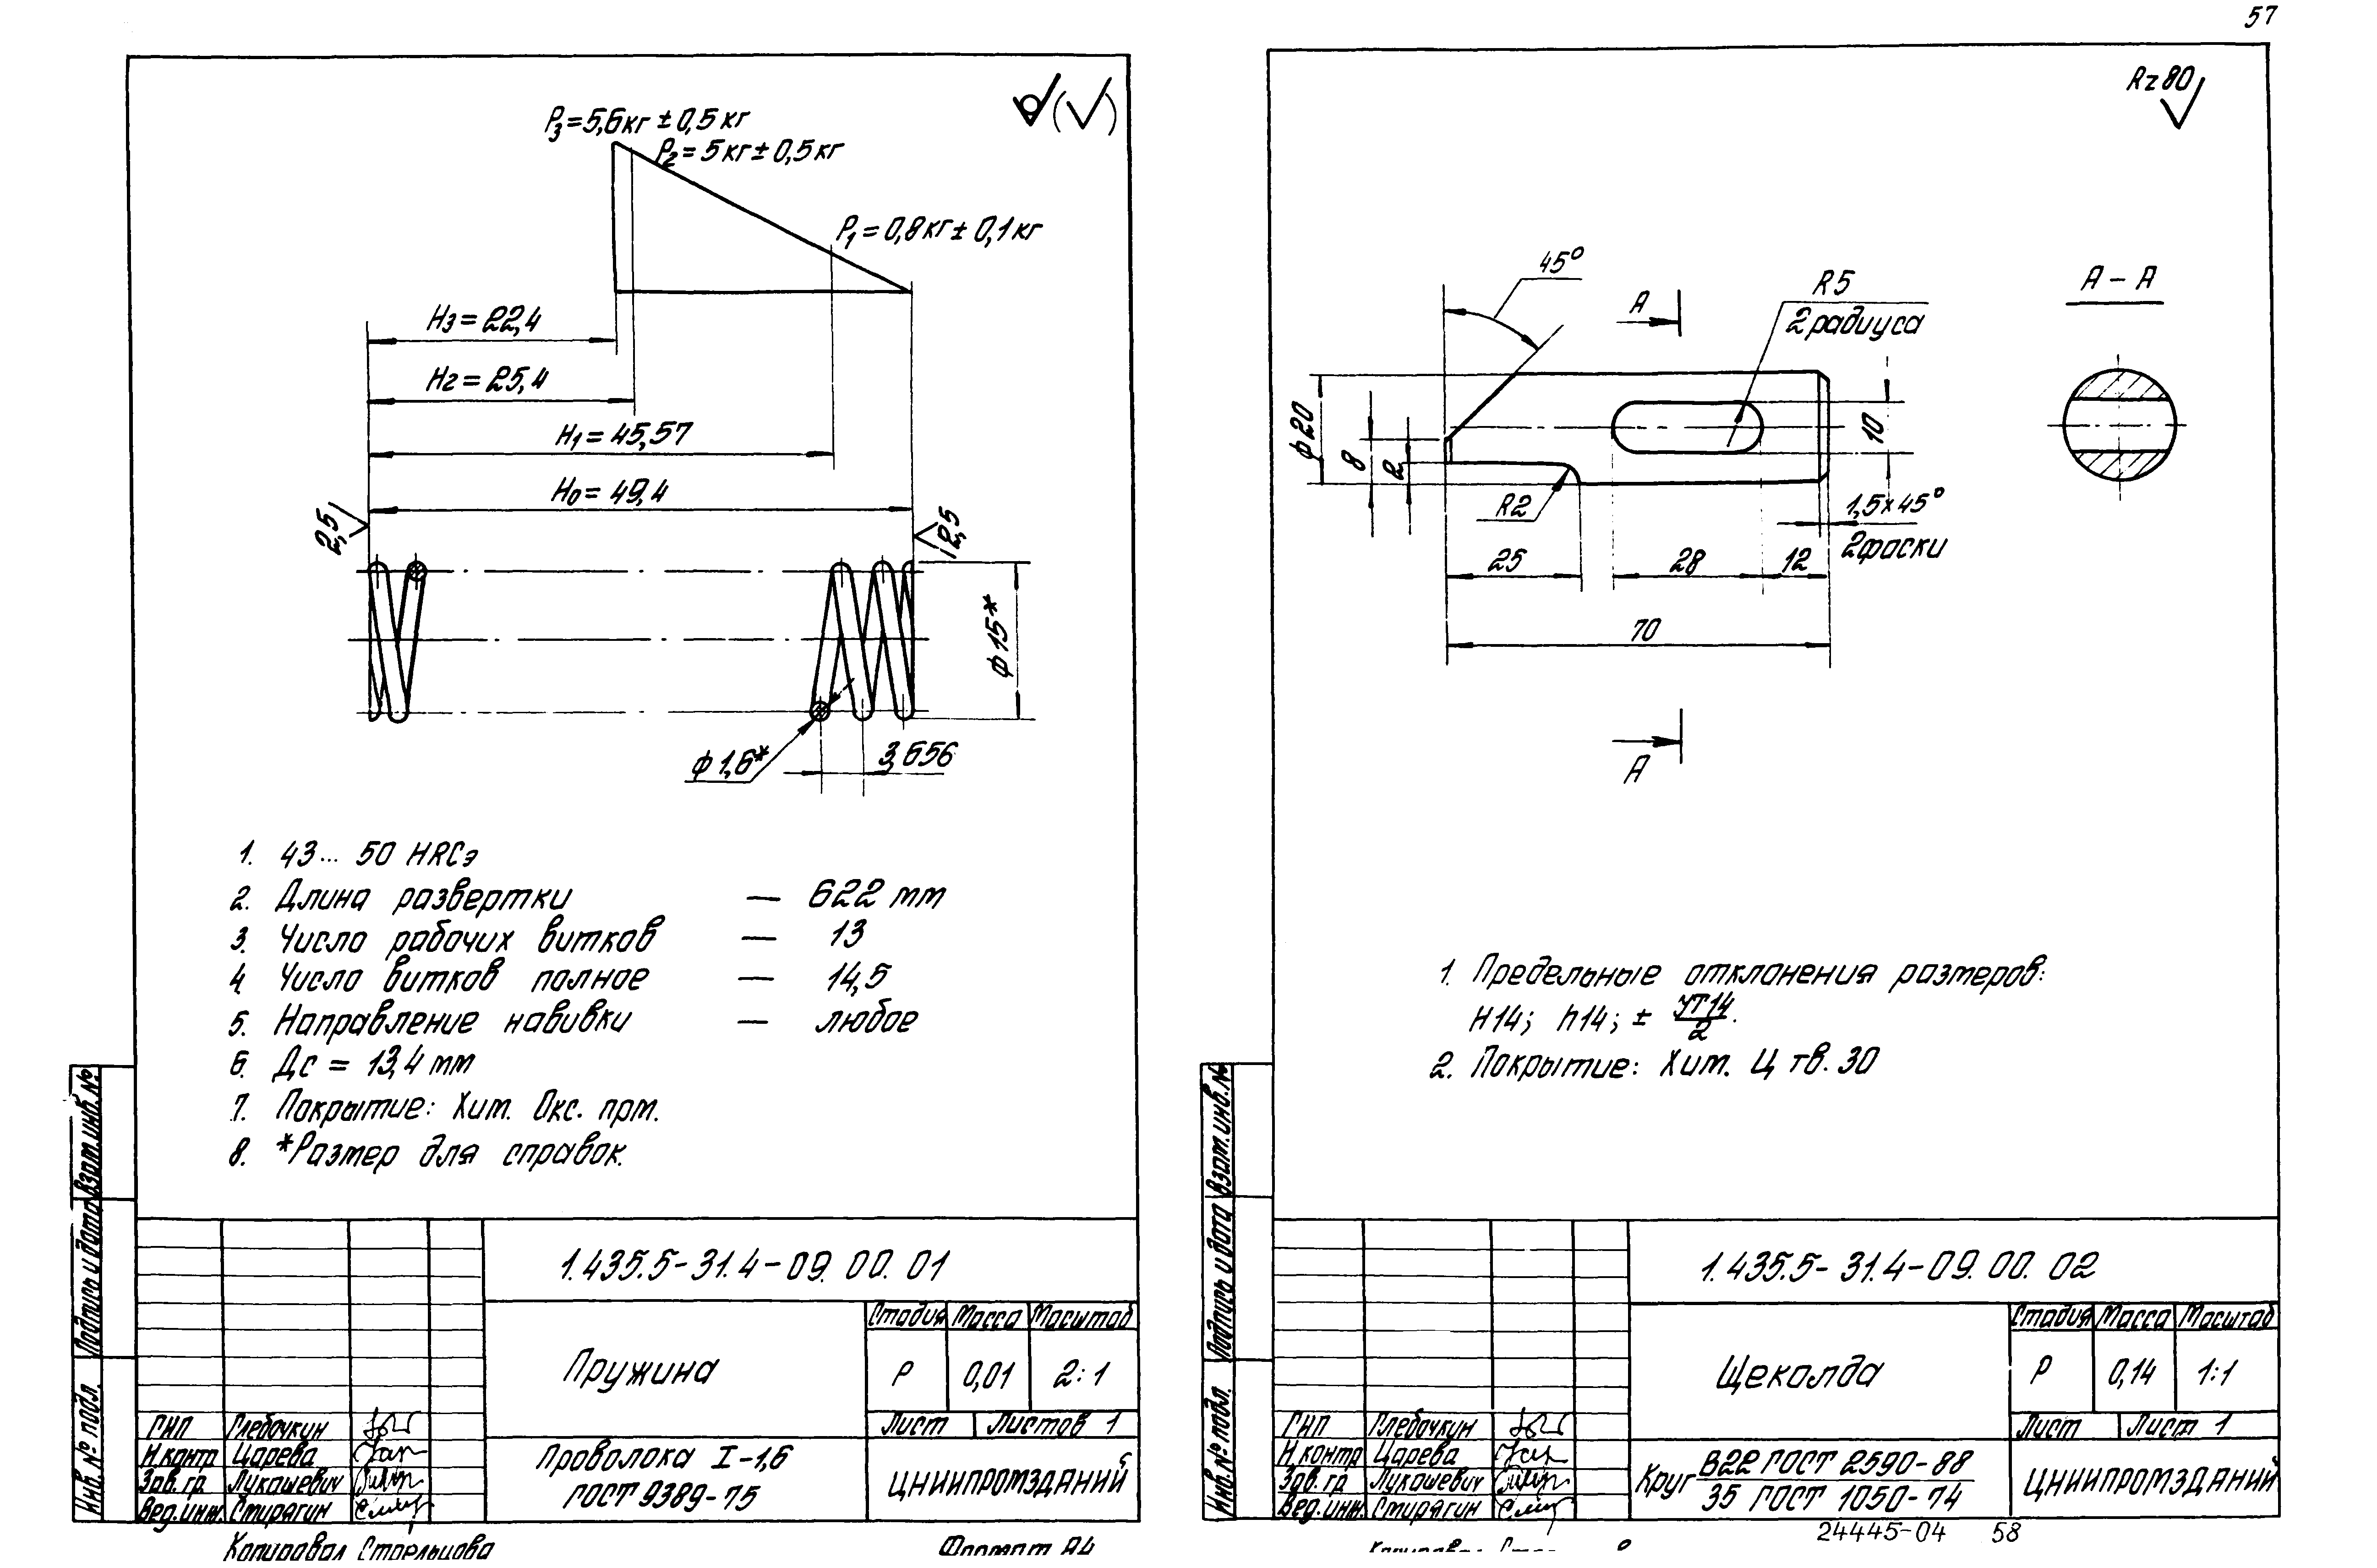 57
P₃=5,6кг±0,5кг
P₂=5кг±0,5кг
P₁=0,8кг±0,1кг
H₃=22,4
H₂=25,4
H₁=45,57
H₀=49,4
2,5
2,5
ф15*
ф1,6*
3,656
1. 43... 50 HRCэ
2. Длина развертки — 622 мм
3. Число рабочих витков — 13
4. Число витков полное — 14,5
5. Направление навивки — любое
6. Дс = 13,4 мм
7. Покрытие: Хим. Окс. прм.
8. *Размер для справок.
Взам.инв.№
Подпись и дата
Инв.№ подл.
1.435.5-31.4-09.00.01
Пружина
Стадия Масса Масштаб
Р 0,01 2:1
Лист Листов 1
ГИП Глебочкин
Н.контр Царева
Зав.гр. Лукашевич
Вед.инж. Стирягин
Проволока I-1,6
ГОСТ 9389-75
ЦНИИПРОМЗДАНИЙ
Копировал Стрельцова
Формат А4
Rz80
45°
А
R5
2 радиуса
А-А
ф20
8
2
R2
10
1,5×45°
2фаски
25
28
12
70
А
1. Предельные отклонения размеров:
H14; h14; ± УТ14/2.
2. Покрытие: Хим. Ц тв. 30
Взам.инв.№
Подпись и дата
Инв.№ подл.
1.435.5-31.4-09.00.02
Щеколда
Стадия Масса Масштаб
Р 0,14 1:1
Лист Лист 1
ГИП Глебочкин
Н.контр Царева
Зав.гр. Лукашевич
Вед.инж. Стирягин
Круг В22 ГОСТ 2590-88
35 ГОСТ 1050-74
ЦНИИПРОМЗДАНИЙ
24445-04 58